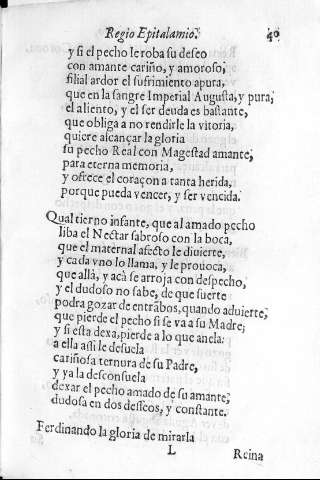 Regio Epitalamio. 40
y si el pecho le roba su deseo
con amante cariño, y amoroso;
filial ardor el sufrimiento apura,
que en la sangre Imperial Augusta, y pura;
el aliento, y el ser deuda es bastante,
que obliga a no rendirle la vitoria,
quiere alcançar la gloria
su pecho Real con Magestad amante;
para eterna memoria,
y ofrece el coraçon a tanta herida,
porque pueda vencer, y ser vencida.
Qual tierno infante, que al amado pecho
liba el Nectar sabroso con la boca,
que el maternal afecto le diuierte,
y cada vno lo llama, y le prouoca,
que allà, y acà se arroja con despecho,
y el dudoso no sabe, de que suerte
podra gozar de entrãbos, quando aduierte,
que pierde el pecho si se va a su Madre;
y si esta dexa, pierde a lo que anela:
a ella assi le desuela
cariñosa ternura de su Padre,
y ya la desconsuela
dexar el pecho amado de su amante,
dudosa en dos desseos, y constante.
Ferdinando la gloria de mirarla
L Reina